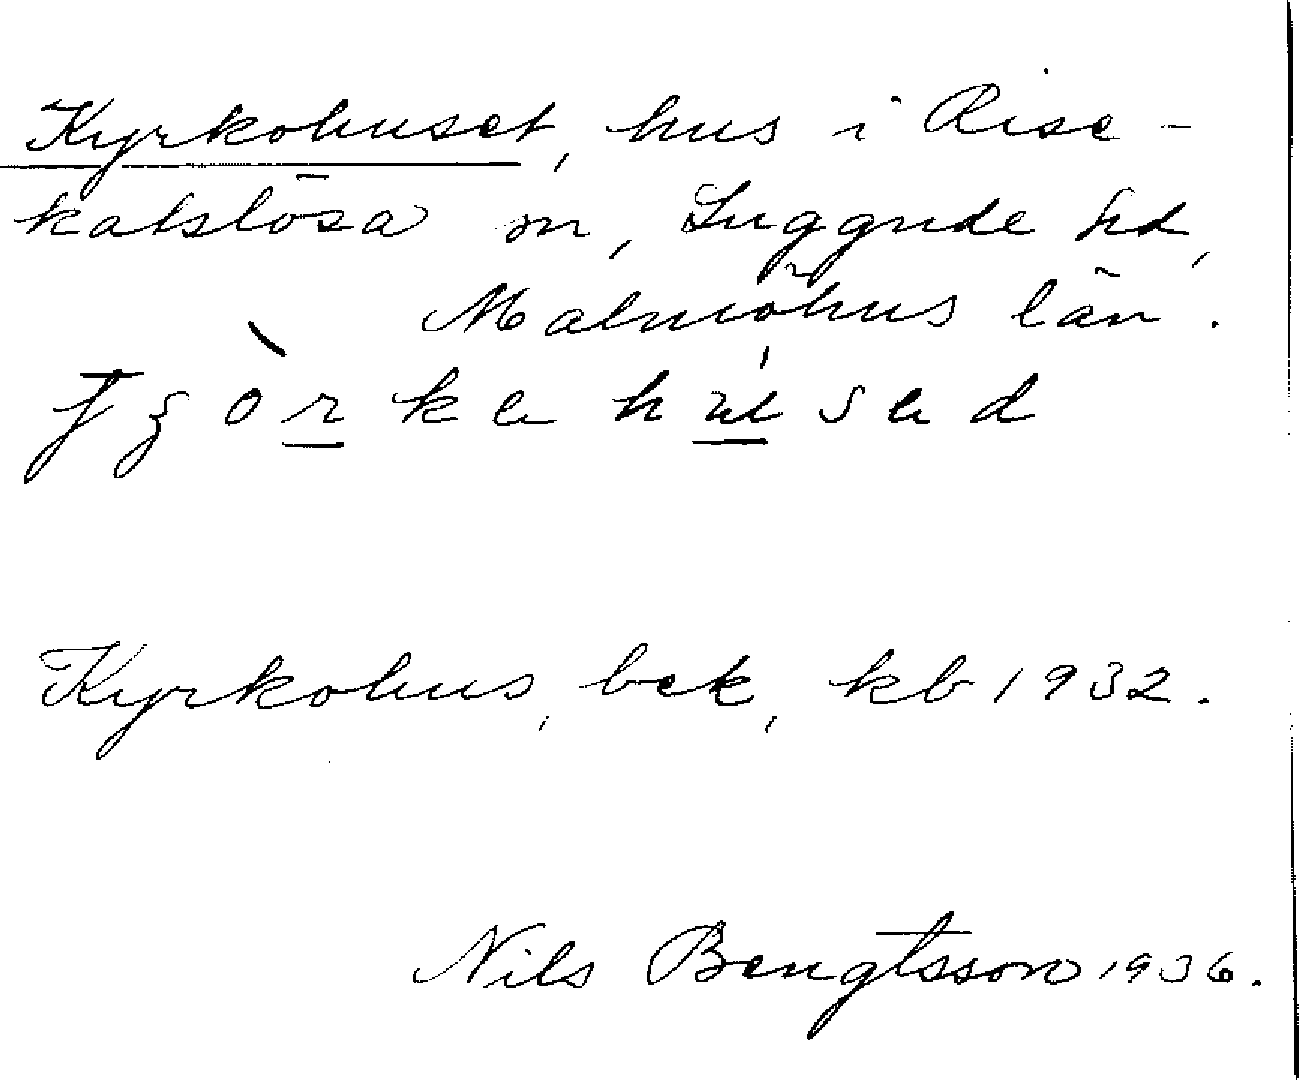 Kyrkohuset, hus i Rise-
katslösa sn, Luggude hd,
Malmöhus län.
Kyrkohus, bek, kb 1932.
Nils Bengtsson 1936.